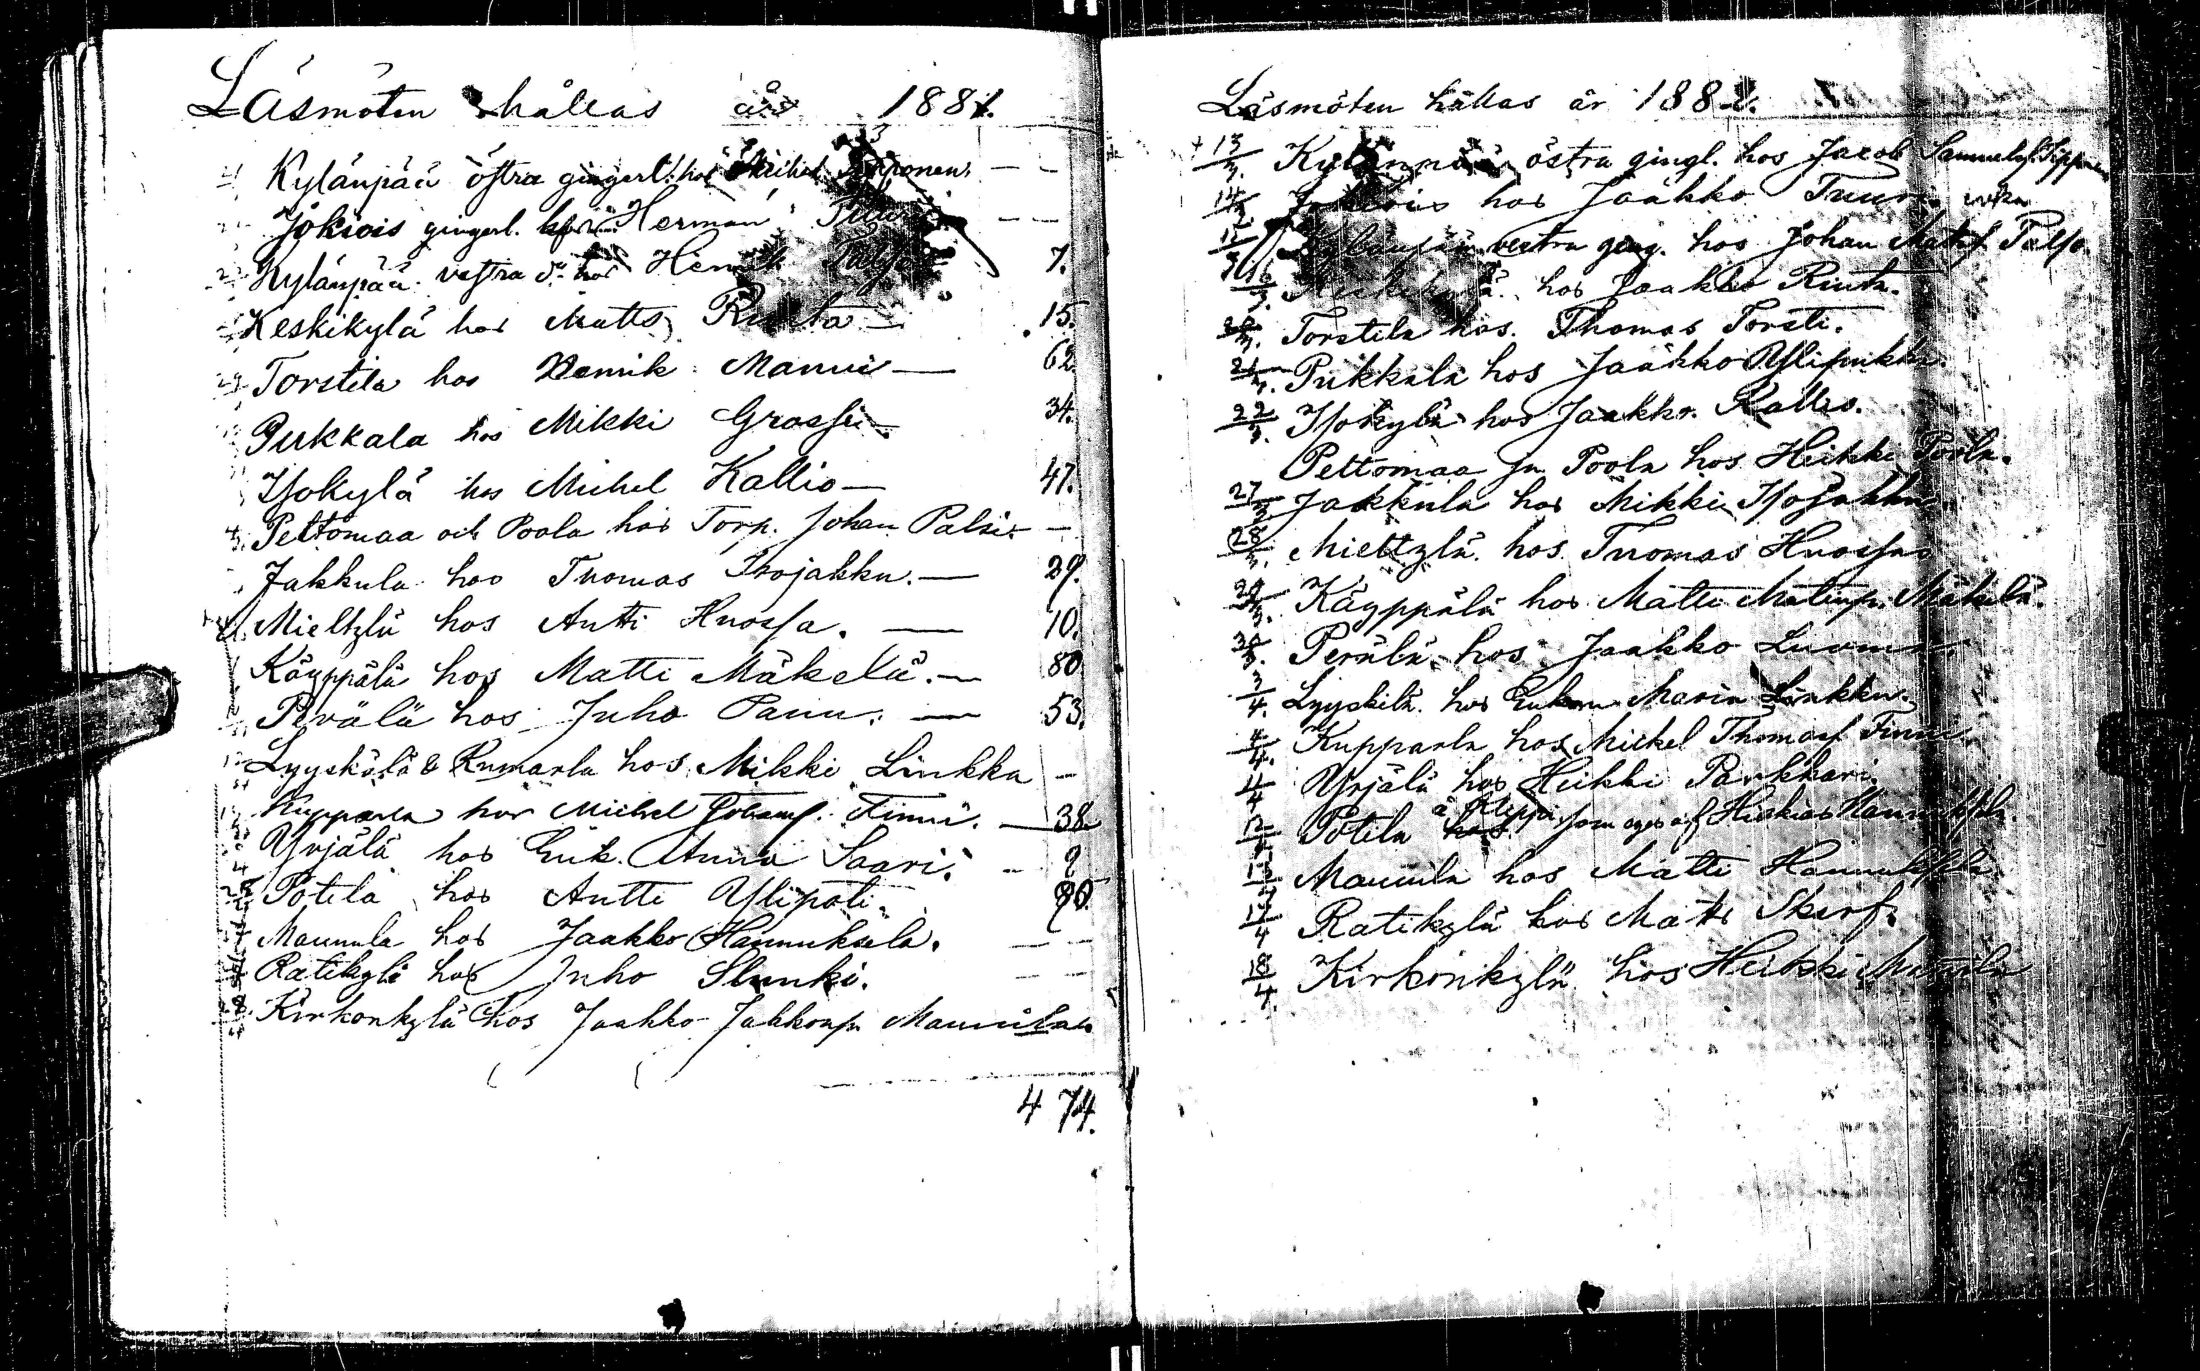 Läsmöten hållas år 1881.
Kylänpää östra gingerl. hos Michel Sipponen. —
Jokiois gingerl. hos Herman —
Kylänpää vestra do hos Henrik 7.
Keskikylä hos Matts Rinta — 15.
Torstila hos Henrik Manni — 62
Pukkala hos Mikki Grossi — 34.
Isokylä hos Michel Kallio — 47.
Peltomaa och Poola hos Torp. Johan Palsi —
Jakkula hos Tuomas Isojakku. — 29.
Mieltylä hos Antti Knossa. — 10.
Käyppälä hos Matti Mäkelä. — 80.
Perälä hos Juho Panu. — 53.
Lyyskilä & Rumarla hos Mikki Linkka —
Kupparla hos Michel Johansf. Finni. — 38
Yrjälä hos Enk. Anna Saari. — 9
Potila hos Antti Ylipoti. 90
Maunula hos Jaakko Hannuksela. —
Ratikylä hos Juho Slunki. —
Kirkonkylä hos Jaakko Jakkonp. Maunula
474.
Läsmöten hållas år 1882.
13/3. Kylänpää östra gingl. hos Jacob Samuelsf. Sippone
14/3 Jokiois hos Jaakko Tuuri
Kylänpää vestra ging. hos Johan Matsf. Palso.
16/3. Keskikylä hos Jaakko Rinta.
20/3. Torstila hos. Thomas Torsti.
21/3. Pukkala hos Jaakko Ylipukka.
22/3. Isokylä hos Jaakko. Kallio.
Peltomaa ja Poola hos Heikki Poola.
27/3 Jakkula hos Mikki Isojakku
28/3. Mieltylä. hos. Tuomas Knossa
29/3. Käyppälä hos Matti Matinp. Mäkelä.
30/3. Perälä hos Jaakko Luoma.
3/4. Lyyskilä. hos Enkan Maria Linkku.
4/4. Kupparla hos Mickel Thomasf. Finni.
4/4 Yrjälä hos Heikki Pankkari.
12/4 Potila å Kleppi som eges af Heikias Hannuksela.
13/4 Maunula hos Matti Hannuksela
17/4 Ratikylä hos Matts Skirf.
18/4. Kirkonkylä hos Heikki Maunula